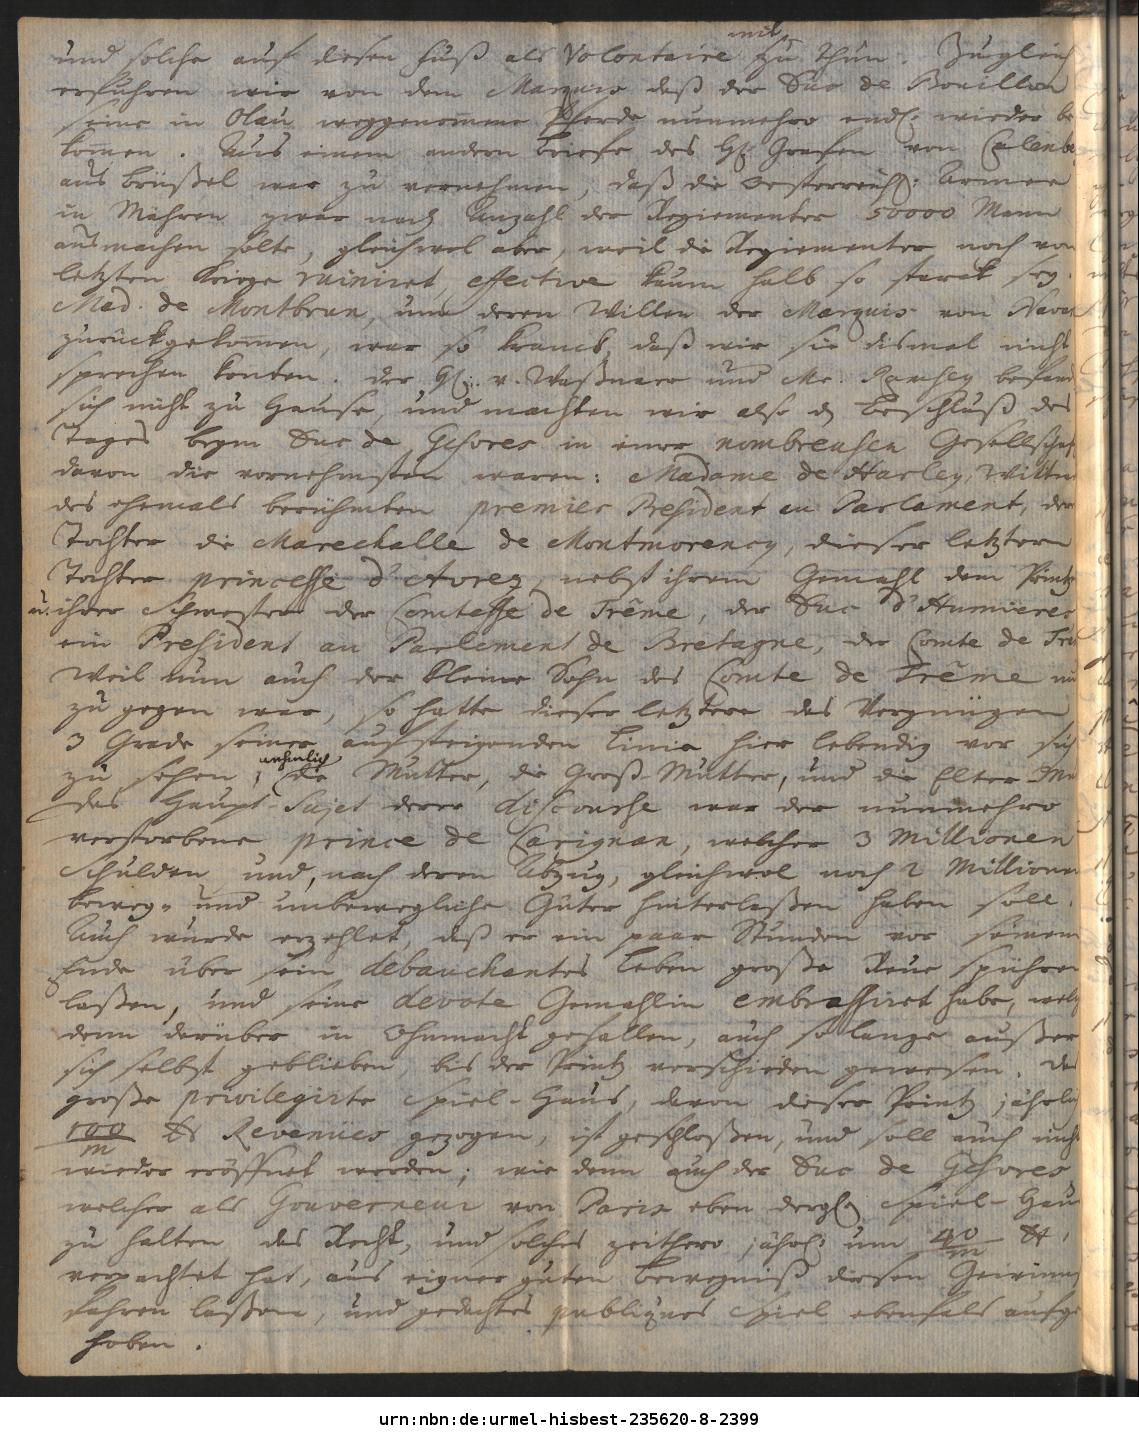 und solche auf diesen Fuß als Volontaire mit zu thun. Zugleich
erfuhren wir von dem Marquis daß der Duc de Bouillon
seine in Olau weggenom̅ene Pferde nunmehro endl. wieder be-
kom̅en. Aus einem andern Briefe des H. Grafen von Calenbe
aus Brüßel war zu vernehmen, daß die Oesterreich: Armee
in Mähren zwar nach Anzahl der Regimenter 50000 Mann
ausmachen solte, gleichwol aber, weil die Regimenter noch von
letzten Kriege ruiniret, effective kaum halb so starck sey.
Mad. de Montbrun, um deren Willen der Marquis von
zurückgekom̅en, war so kranck, daß wir sie dismal nicht
sprechen konten. Der H. v. Waßnaer und Mr. Ramsey befand
sich nicht zu Hause, und machten wir also d Beschluß des
Tages beym Duc de Gesvres in einer nombreusen Gesellschaf
davon die vornehmsten waren: Madame de Harley, Wittw
des ehemals berühmten premier President au Parlament, der
Tochter die Marechalle de Montmorency, dieser letztern
Tochter princesse d'Auvreg, nebst ihrem Gemahl dem Printz
u. ihrer Schwester der Comtesse de Trême, der Duc d'Humieres
ein President au Parlement de Bretagne, der Comte de Trê
Weil nun auch der kleine Sohn des Comte de Trême mit
zugegen war, so hatte dieser letztere das Vergnügen
3 Grade seiner aufsteigenden Linie hier lebendig vor sich
zu sehen, nehmlich die Mutter, die Groß-Mutter, und die Elter Mu
Das Haupt-Sujet derer discourse war der nunmehro
verstorbene prince de Carignan, welcher 3 Millionen
Schulden und, nach deren Abzug, gleichwol noch 2 Millionen
beweg- und unbewegliche Güter hinterlaßen haben soll.
Auch wurde erzehlet, daß er ein paar Stunden vor seinem
Ende über sein debauchantes Leben große Reue spühren
laßen, und seine devote Gemahlin embrassiret habe, welch
denn darüber in Ohnmacht gefallen, auch so lange außer
sich selbst geblieben, bis der Printz verschieden gewesen. Das
große privilegirte Spiel-Haus, davon dieser Printz jährlich
100/m Revenües gezogen, ist geschloßen, und soll auch nicht
wieder eröffnet werden; wie denn auch der Duc de Gesvres
welcher als Gouverneur von Paris eben dergl. Spiel-Hau
zu halten das Recht, und solches zeithero jährl. um 40/m
verpachtet hat, aus eigner guten Bewegniß diesen Gewinnst
fahren laßen, und gedachtes publiques Spiel ebenfals aufge-
hoben.
urn:nbn:de:urmel-hisbest-235620-8-2399